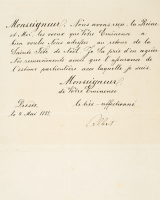 Monseigneur, Nous avons reçu, la Reine
et Moi, les vœux que Votre Eminence
a bien voulu Nous adresser au retour de la
Sainte Fête de Noël. Je La prie d'en agréer
Nos remerciements ainsi que l'assurance de
l'estime particulière avec laquelle je suis,
Monseigneur
de Votre Eminence
le très affectionné
le 8 Mai 188
Albert